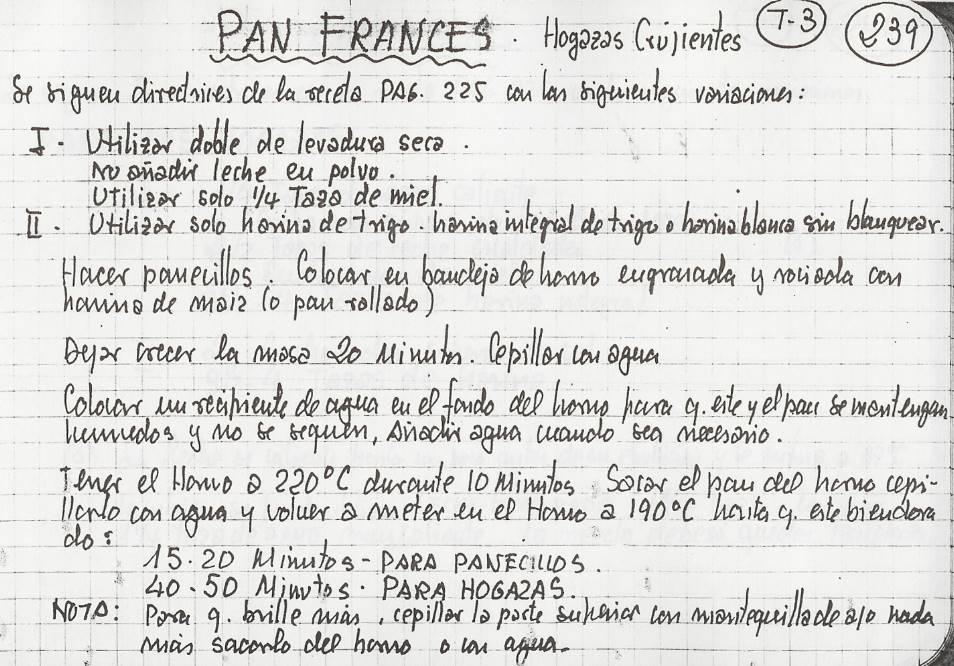 PAN FRANCES. Hogazas Crujientes T-3 239
Se siguen directrices de la receta PAG. 225 con las siguientes variaciones:
I - Utilizar doble de levadura seca.
No añadir leche en polvo.
Utilizar solo 1/4 Taza de miel.
II - Utilizar solo harina de trigo. harina integral de trigo o harina blanca sin blanquear.
Hacer panecillos. Colocar en bandeja de horno engrasada y rociada con
harina de maiz (o pan rallado)
Dejar crecer la masa 20 Minutos. Cepillar con agua
Colocar un recipiente de agua en el fondo del horno para q. este y el pan se mantengan
humedos y no se sequen, Añadir agua cuando sea necesario.
Tener el Horno a 220°C durante 10 Minutos Sacar el pan del horno cepi-
llarlo con agua y volver a meter en el Horno a 190°C hasta q. este bien dora
do:
15-20 Minutos - PARA PANECILLOS.
40-50 Minutos - PARA HOGAZAS.
NOTA: Para q. brille más, cepillar la parte superior con mantequilla de ajo nada
más sacarlo del horno o con agua.